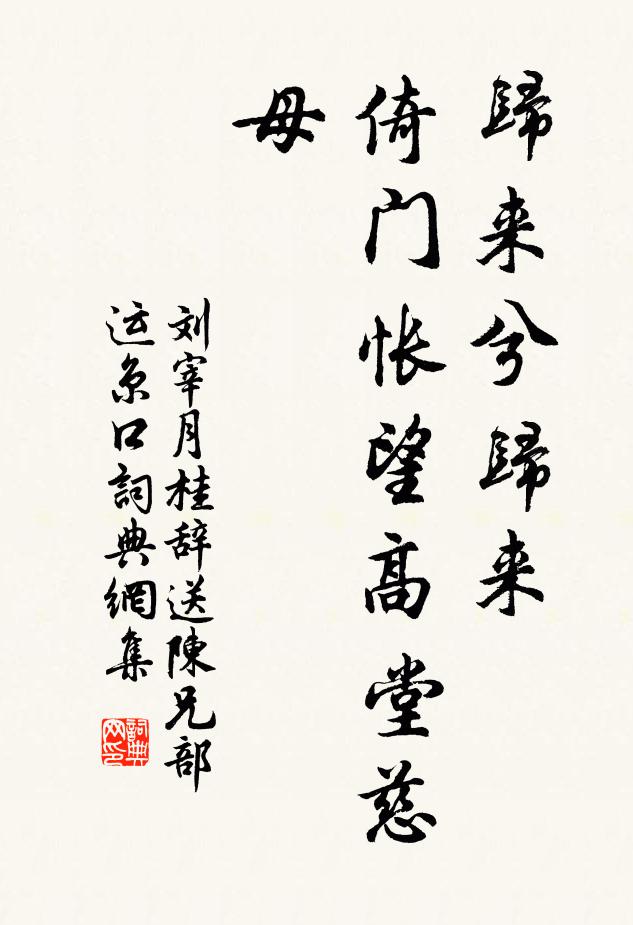 歸来兮歸来
倚门怅望高堂慈
母
刘宰月桂辞送陳兄部
运京口詞典網集
詞典
网印